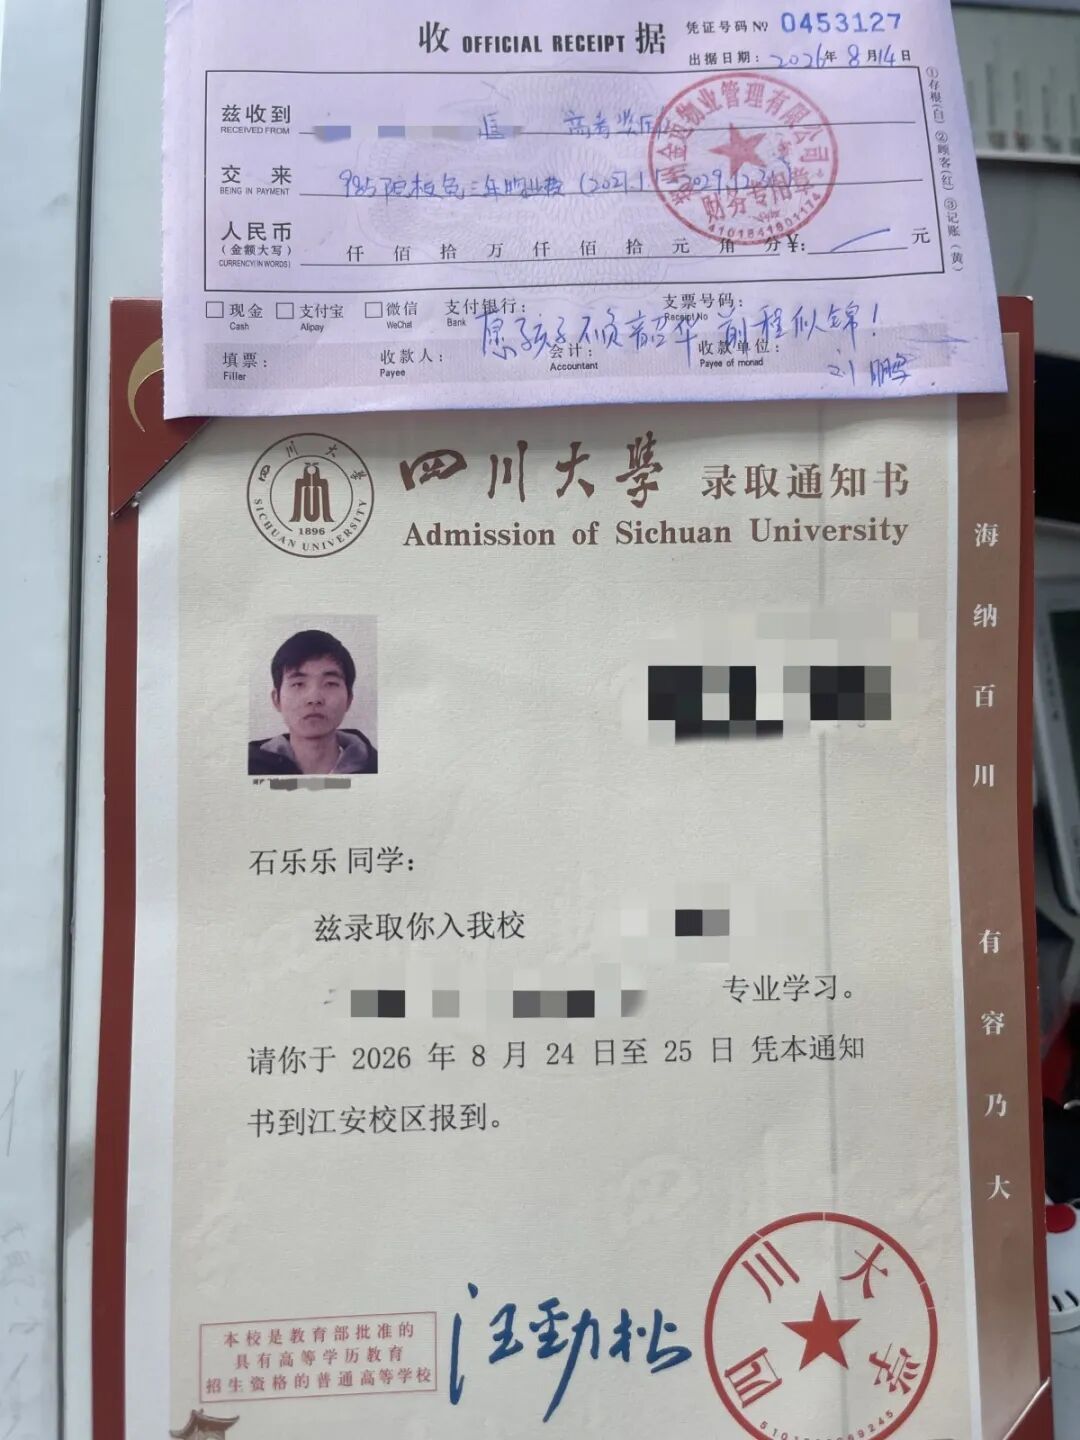 收 OFFICIAL RECEIPT 据
凭证号码 № 0453127
出据日期：2026年8月14日
兹收到
RECEIVED FROM
高考奖励
交 来
BEING IN PAYMENT
985院校免三年物业费
人民币
（金额大写）
CURRENCY(IN WORDS)
仟 佰 拾 万 仟 佰 拾 元 角 分 ¥： 元
①存根（白）②顾客（红）③记账（黄）
物业管理有限公司
财务专用章
4101841801174
现金 支付宝 微信 支付银行： 支票号码：
Cash Alipay WeChat Bank Receipt No
愿孩子不负韶华 前程似锦！
填票： 收款人： 会计： 收款单位：
Filler Payee Accountant Payee of monad
刘鹏
四川大学 录取通知书
Admission of Sichuan University
四川大学
SICHUAN UNIVERSITY
1896
海纳百川 有容乃大
石乐乐 同学：
兹录取你入我校
专业学习。
请你于 2026 年 8 月 24 日至 25 日 凭本通知
书到江安校区报到。
本校是教育部批准的
具有高等学历教育
招生资格的普通高等学校
汪劲松
四川大学